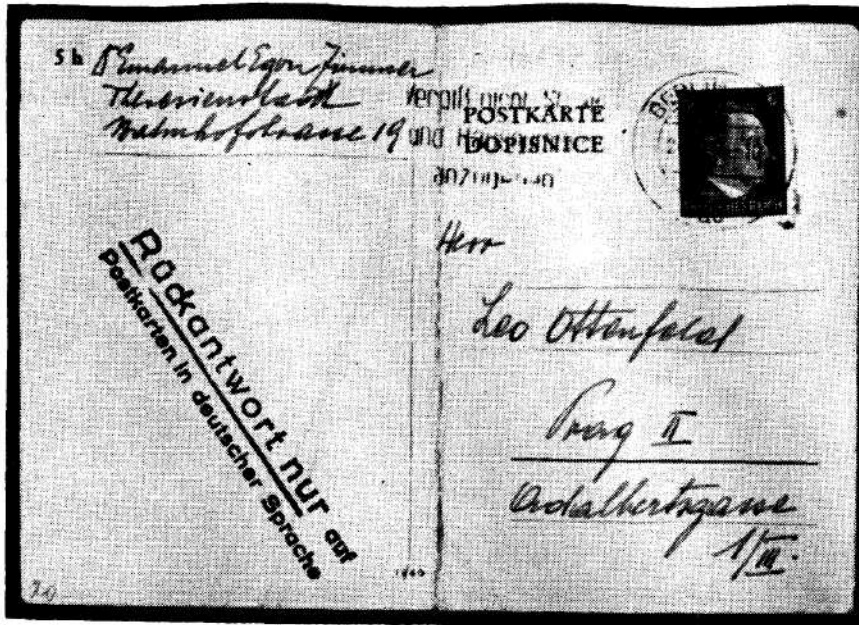 5 h Dr Emanuel Egon Zimmer
Theresienstadt
Bahnhofstrasse 19
POSTKARTE
und
DOPISNICE
BERLIN
Herr
Leo Ottenfeld
Prag II
Adalbertsgasse
1/III.
Rückantwort nur auf
Postkarten in deutscher Sprache